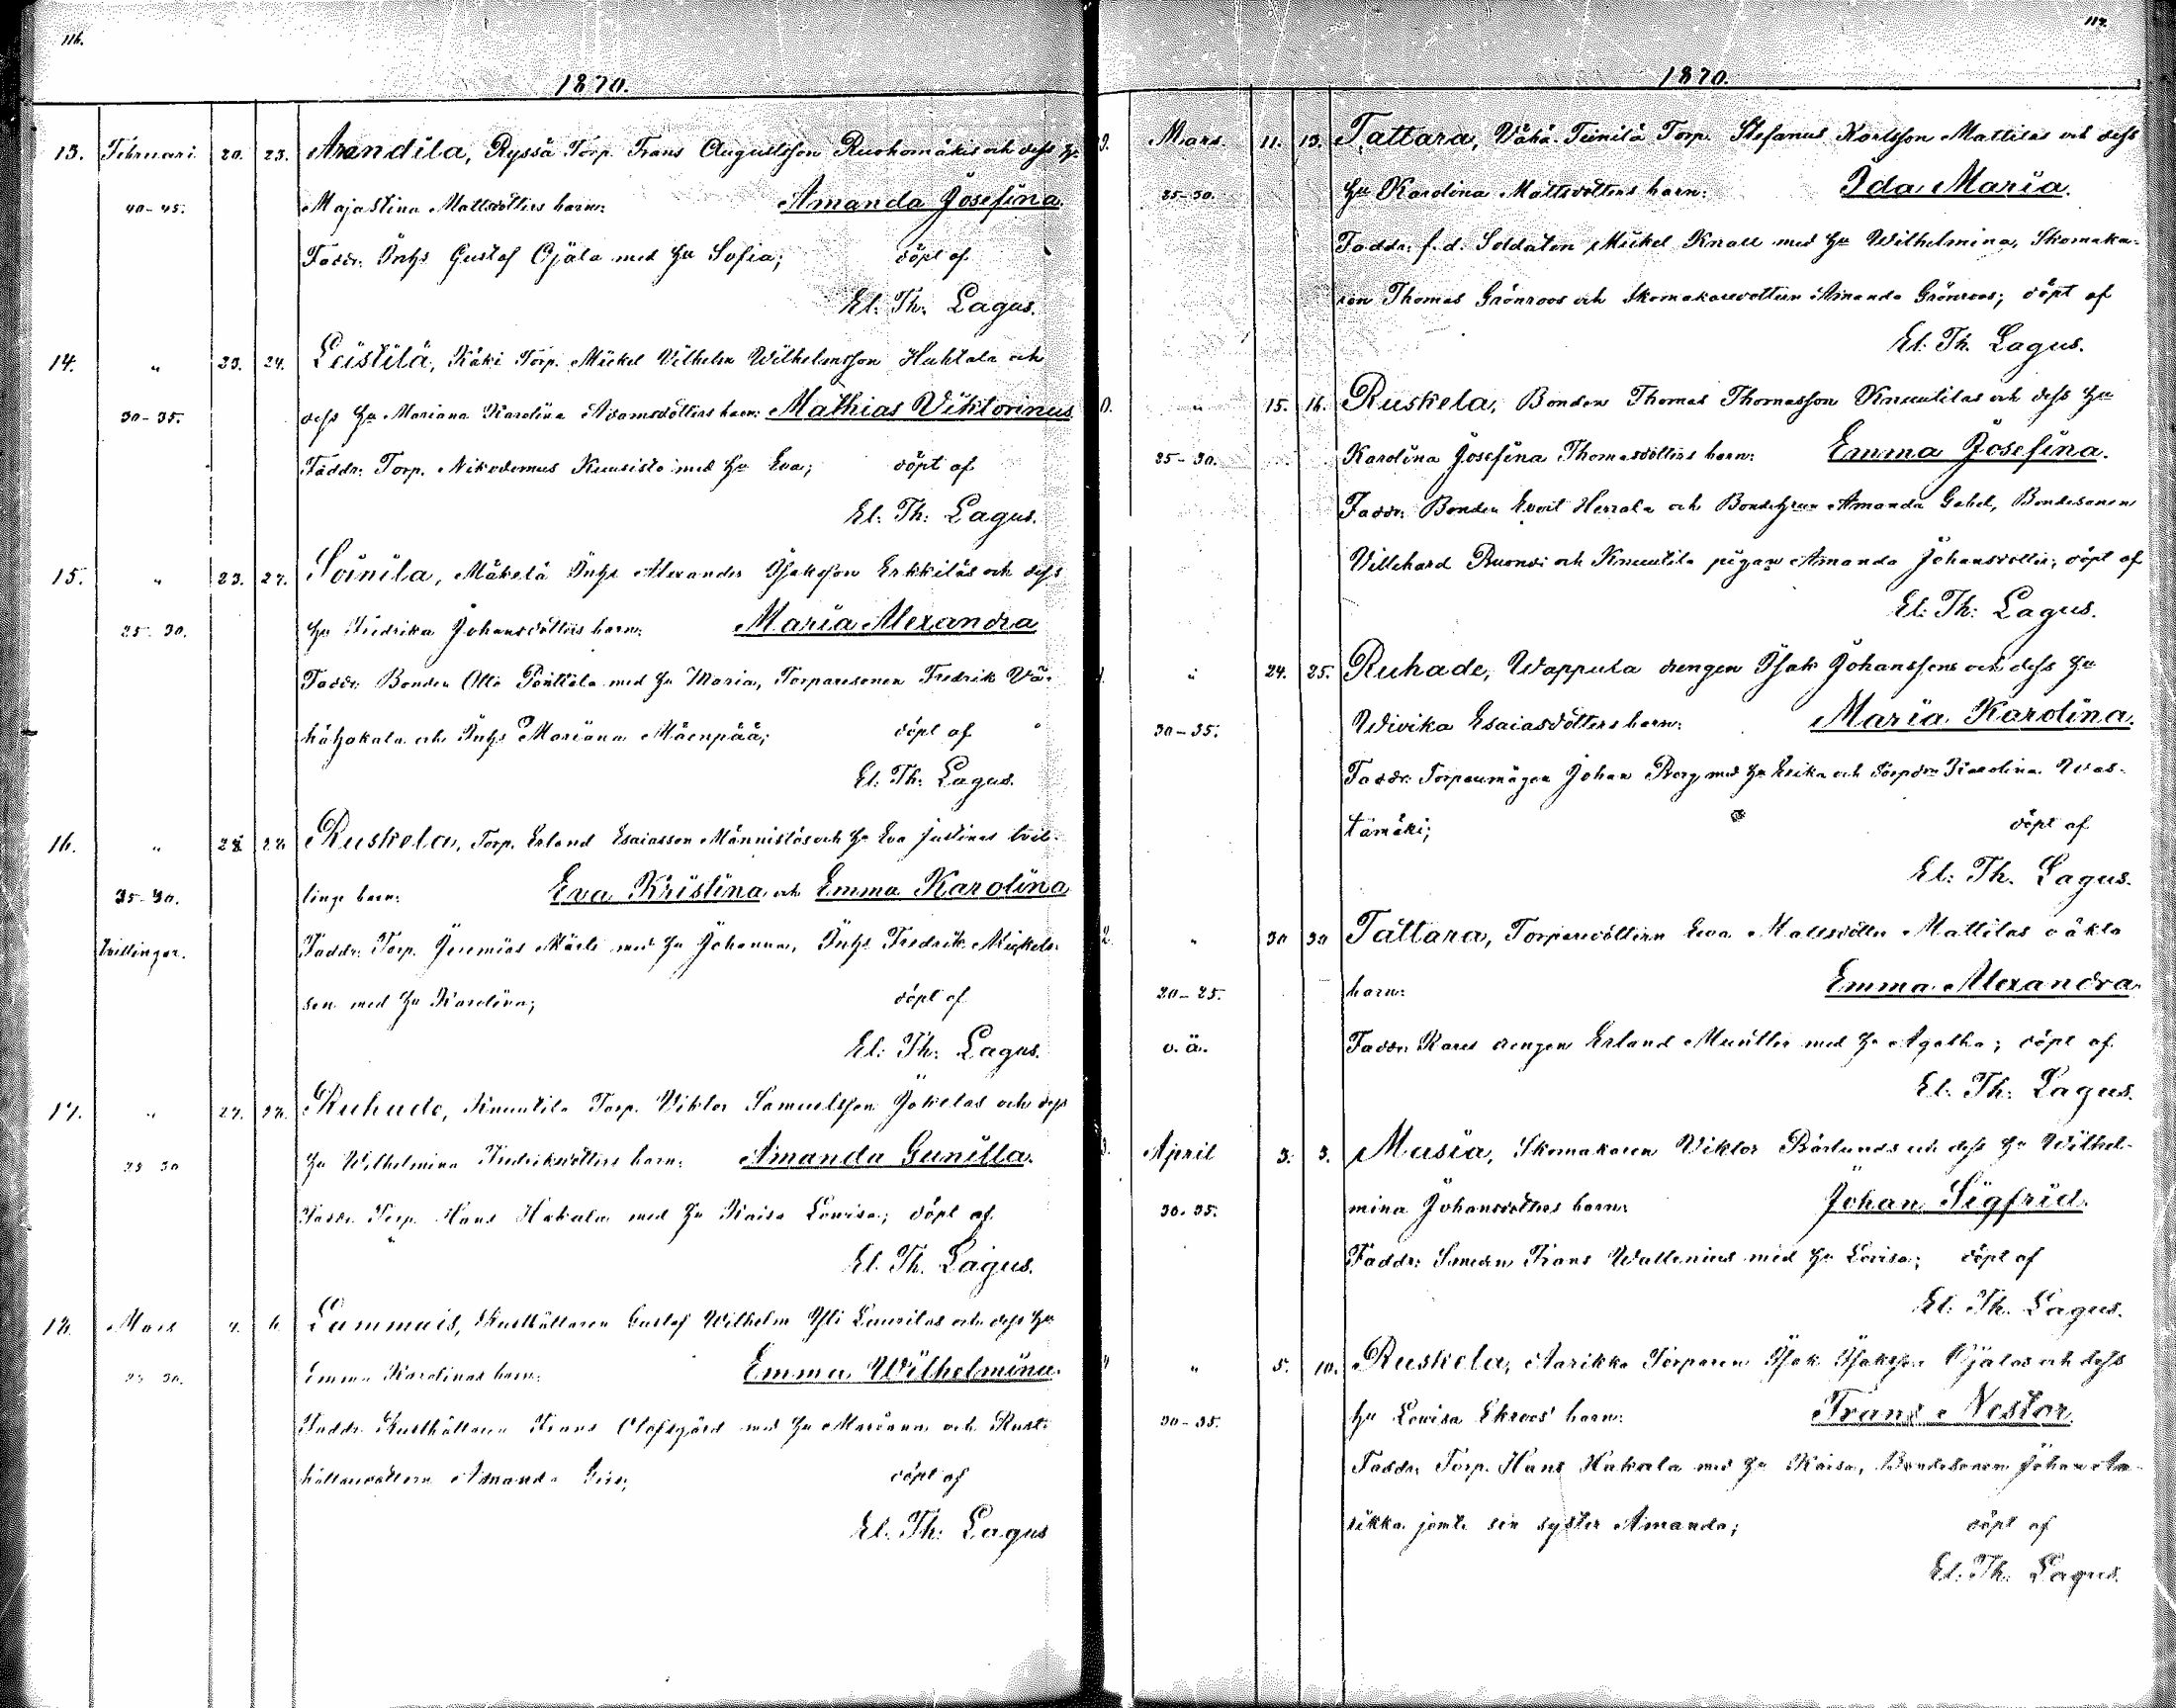 116.
1870.
13. Februari 20. 23. Arandila, Ryssä Torp. Frans Augustsson Ruohomäkis och dess Hu
40-45. Majastina Mattsdotters barn: Amanda Josefina.
Faddr: Inhs Gustaf Ojala med Hu Sofia; döpt af
El. Th. Lagus.
14. " 23. 24. Leistilä, Käki Torp. Mickel Vilhelm Wilhelmsson Huhtala och
30-35. dess Hu Mariana Karolina Adamsdotters barn: Mathias Viktorinus
Faddr: Torp. Nikodemus Kuusisto med Hu Eva; döpt af
El: Th: Lagus.
15. " 23. 27. Soinila, Mäkelä Inhs Alexander Isaksson Erkkiläs och dess
25-30. Hu Fredrika Johansdotters barn: Maria Alexandra
Faddr: Bonden Otto Penttala med Hu Maria, Torparesonen Fredrik Vä-
hähakala och Inhs Mariana Mäenpää; döpt af
El. Th: Lagus.
16. " 28 28 Ruskela, Torp. Erland Esaiasson Männistös och Hu Eva Justinas tvil-
35-40. linge barn: Eva Kristina och Emma Karolina
tvillingar. Faddr: Torp. Jeremias Märli med Hu Johanna, Inhs Fredrik Mickels-
son med Hu Karolina; döpt af
El: Th: Lagus.
17. " 27. 28. Ruhade, Knuutila Torp. Viktor Samuelsson Jokelas och dess
25 30 Hu Wilhelmina Fredriksdotters barn: Amanda Gunilla.
Faddr. Torp. Hans Hakala med Hu Kaisa Lowisa; döpt af
El. Th. Lagus.
18. Mars 4. 6. Lammais, Rusthållaren Gustaf Wilhelm Yli Laurilas och dess Hu
25 30. Emma Karolinas barn: Emma Wilhelmina.
Faddr. Rusthållaren Frans Olofsgård med Hu Mariana och Rust-
hållaredottern Amanda; döpt af
El. Th: Lagus
117.
1870.
9. Mars. 11. 13. Tattara, Vähä-Teinilä Torp. Stefanus Karlsson Mattilas och dess
25-30. Hu Karolina Mattsdotters barn: Ida Maria.
Faddr: f.d. Soldaten Mickel Knall med Hu Wilhelmina, Skomaka-
ren Thomas Grönroos och Skomakaredottern Amanda Grönroos; döpt af
El. Th. Lagus.
0. " 15. 16. Ruskela, Bonden Thomas Thomasson Knuutilas och dess Hu
25-30. Karolina Josefina Thomasdotters barn: Emma Josefina.
Faddr: Bonden Evert Herrala och Bondehustrun Amanda Gabel, Bondesonen
Villehard Ruondi och Knuutila pigan Amanda Johansdotter; döpt af
El: Th: Lagus.
1. " 24. 25. Ruhade, Wappula drengen Isak Johanssons och dess Hu
30-35. Wivika Esaiasdotters barn: Maria Karolina.
Faddr: Torparemågen Johan Borg med Hu Erika och Torpdn Karolina Was-
tamäki; döpt af
El: Th. Lagus.
2. " 30 30 Tattara, Torparedottern Eva Mattsdotter Mattilas oäkta
20-25. barn: Emma Alexandra.
o. ä. Faddr. Kares drengen Erland Muntter med Hu Agatha; döpt af
El: Th: Lagus.
3. April 3. 3. Musia, Skomakaren Viktor Bärlunds och dess Hu Wilhel-
30-35. mina Johansdotters barn: Johan Sigfrid.
Faddr: Smeden Frans Wallenius med Hu Lovisa; döpt af
El: Th. Lagus.
4 " 5. 10. Ruskela, Aarikka Torparen Isak Isaksson Ojalas och dess
30-35. Hu Lovisa Ekroos' barn: Frans Nestor.
Faddr: Torp. Hans Hakala med Hu Kaisa, Bondesonen Johan Aa-
rikka jemte sin syster Amanda; döpt af
El: Th: Lagus.